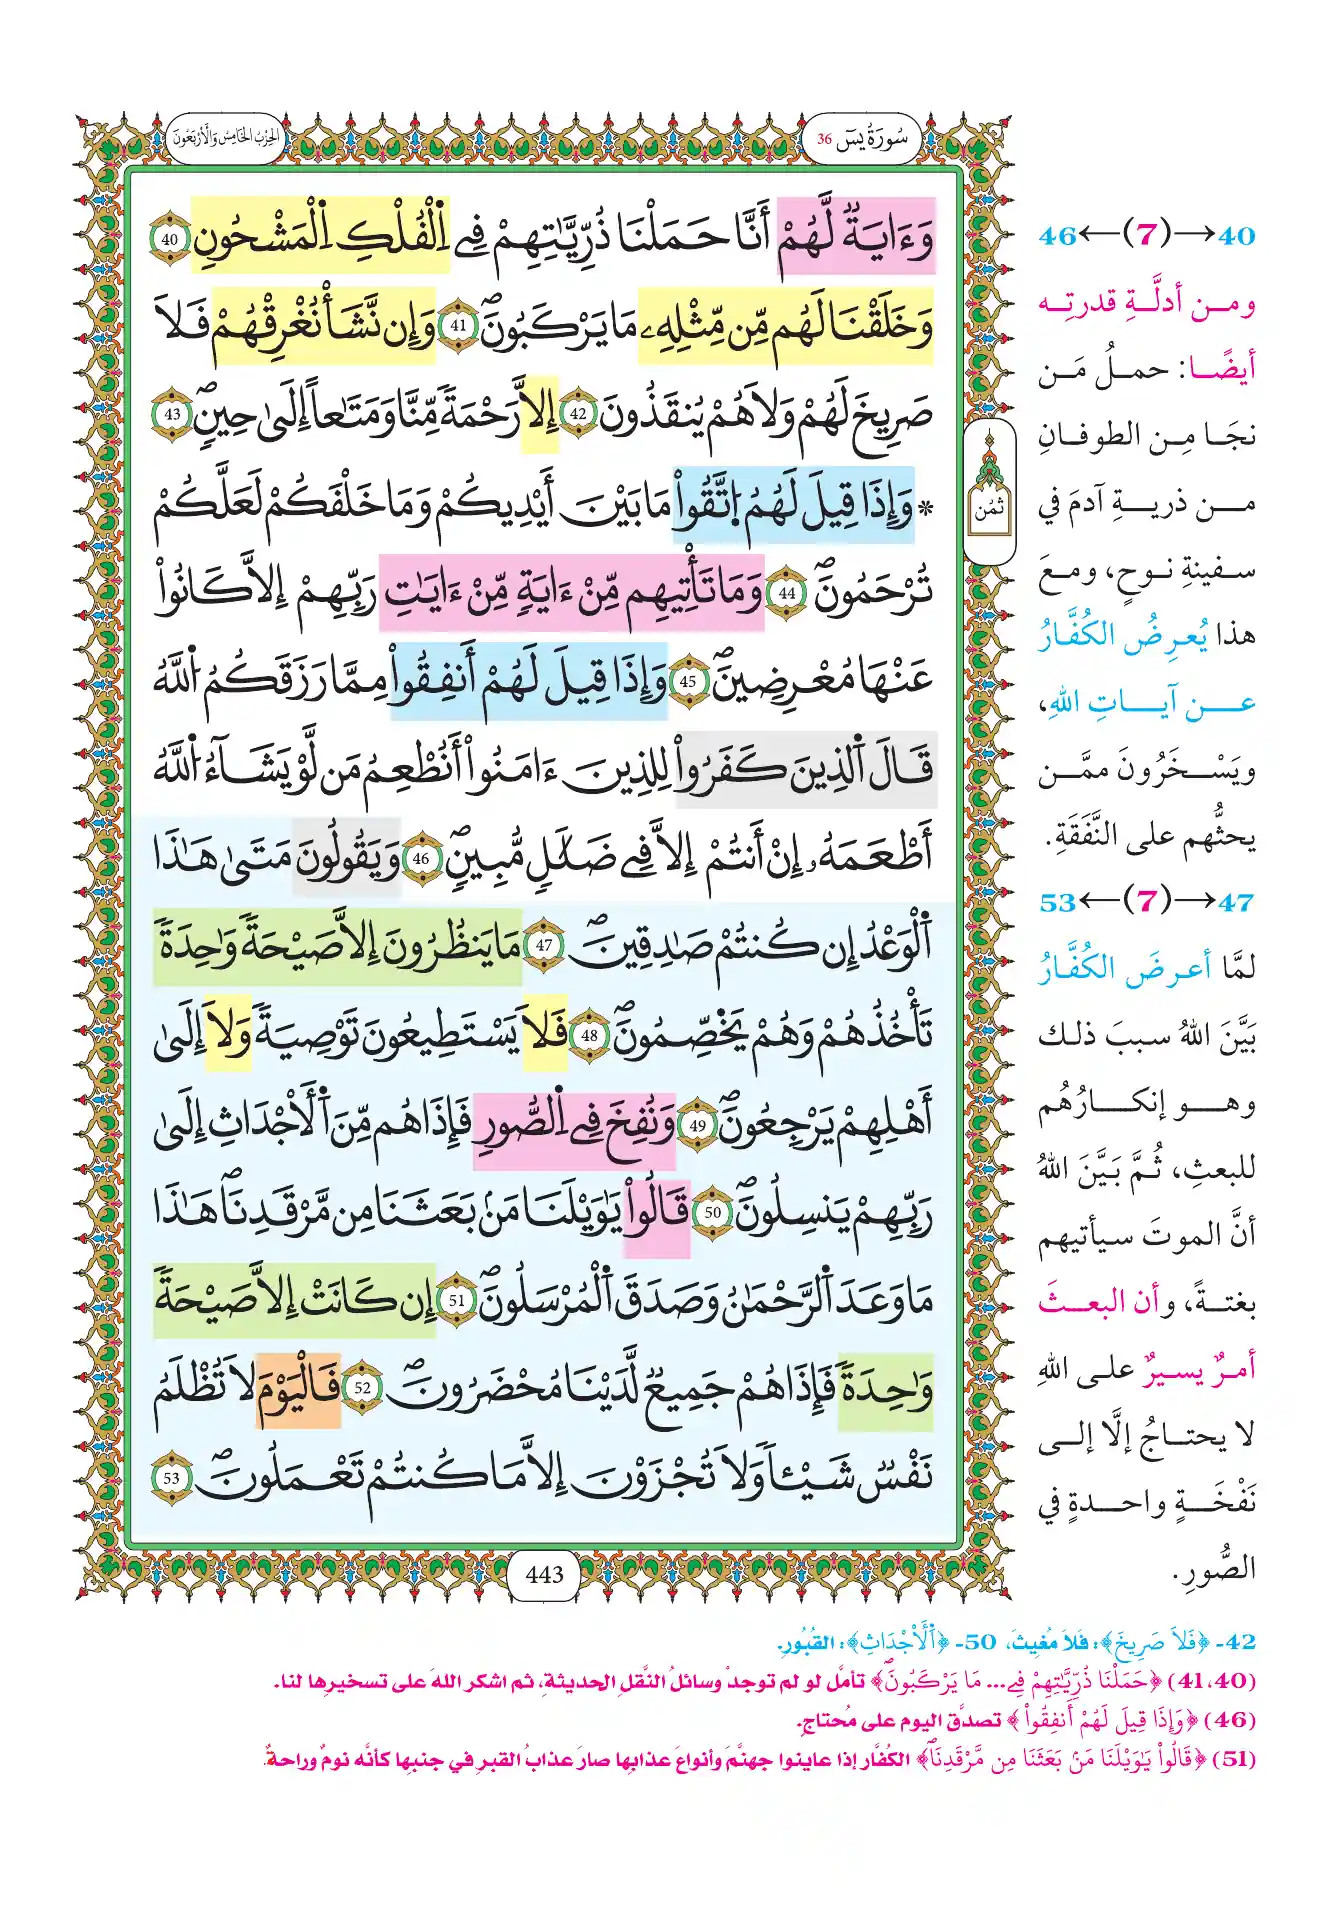 سُورَةُ يٓسٓ 36
الحِزْبُ الخَامِسُ وَالأَرْبَعُونَ
وَءَايَةٞ لَّهُمُۥٓ أَنَّا حَمَلْنَا ذُرِّيَّٰتِهِمْ فِے اِ۬لْفُلْكِ اِ۬لْمَشْحُونِ 40
وَخَلَقْنَا لَهُم مِّن مِّثْلِهِۦ مَا يَرْكَبُونَۖ 41 وَإِن نَّشَأْ نُغْرِقْهُمْ فَلَا
صَرِيخَ لَهُمْ وَلَا هُمْ يُنقَذُونَ 42 إِلَّا رَحْمَةٗ مِّنَّا وَمَتَٰعاً إِلَىٰ حِينٖۖ 43
* وَإِذَا قِيلَ لَهُمُ اُ۪تَّقُواْ مَا بَيْنَ أَيْدِيكُمْ وَمَا خَلْفَكُمْ لَعَلَّكُمْ
تُرْحَمُونَۖ 44 وَمَا تَأْتِيهِم مِّنْ ءَايَةٖ مِّنْ ءَايَٰتِ رَبِّهِمْ إِلَّا كَانُواْ
عَنْهَا مُعْرِضِينَۖ 45 وَإِذَا قِيلَ لَهُمْ أَنفِقُواْ مِمَّا رَزَقَكُمُ اُ۬للَّهُ
قَالَ اَ۬لذِينَ كَفَرُواْ لِلذِينَ ءَامَنُواْ أَنُطْعِمُ مَن لَّوْ يَشَآءُ اُ۬للَّهُ
أَطْعَمَهُۥ إِنْ أَنتُمْ إِلَّا فِے ضَلَٰلٖ مُّبِينٖۖ 46 وَيَقُولُونَ مَتَىٰ هَٰذَا
اَ۬لْوَعْدُ إِن كُنتُمْ صَٰدِقِينَۖ 47 مَا يَنظُرُونَ إِلَّا صَيْحَةٗ وَٰحِدَةٗ
تَأْخُذُهُمْ وَهُمْ يَخَصِّمُونَۖ 48 فَلَا يَسْتَطِيعُونَ تَوْصِيَةٗ وَلَا إِلَىٰ
أَهْلِهِمْ يَرْجِعُونَۖ 49 وَنُفِخَ فِے اِ۬لصُّورِ فَإِذَا هُم مِّنَ اَ۬لْأَجْدَاثِ إِلَىٰ
رَبِّهِمْ يَنسِلُونَۖ 50 قَالُواْ يَٰوَيْلَنَا مَنۢ بَعَثَنَا مِن مَّرْقَدِنَاۖ هَٰذَا
مَا وَعَدَ اَ۬لرَّحْمَٰنُ وَصَدَقَ اَ۬لْمُرْسَلُونَۖ 51 إِن كَانَتِ اِلَّا صَيْحَةٗ
وَٰحِدَةٗ فَإِذَا هُمْ جَمِيعٞ لَّدَيْنَا مُحْضَرُونَۖ 52 فَالْيَوْمَ لَا تُظْلَمُ
نَفْسٞ شَيْـٔاٗ وَلَا تُجْزَوْنَ إِلَّا مَا كُنتُمْ تَعْمَلُونَۖ 53
ثُمُن
443
40←(7)→46
ومن أدلَّةِ قدرتِه
أيضًا: حملُ مَن
نجَا مِن الطوفانِ
من ذريةِ آدمَ في
سفينةِ نوحٍ، ومعَ
هذا يُعرِضُ الكُفَّارُ
عن آياتِ اللهِ،
ويَسْخَرُونَ ممَّن
يحثُّهم على النَّفَقَةِ.
47←(7)→53
لمَّا أعرضَ الكُفَّارُ
بَيَّنَ اللهُ سببَ ذلك
وهو إنكارُهُم
للبعثِ، ثُمَّ بَيَّنَ اللهُ
أنَّ الموتَ سيأتيهم
بغتةً، وأن البعثَ
أمرٌ يسيرٌ على اللهِ
لا يحتاجُ إلَّا إلى
نَفْخَةٍ واحدةٍ في
الصُّورِ.
42- ﴿فَلَا صَرِيخَ﴾: فَلاَ مُغِيثَ، 50- ﴿اَ۬لْأَجْدَاثِ﴾: القُبُورِ.
(40، 41) ﴿حَمَلْنَا ذُرِّيَّٰتِهِمْ فِے... مَا يَرْكَبُونَۖ﴾ تأمَّل لو لم توجدْ وسائلُ النَّقلِ الحديثةِ، ثم اشكر اللهَ على تسخيرِها لنا.
(46) ﴿وَإِذَا قِيلَ لَهُمْ أَنفِقُواْ﴾ تصدَّق اليوم على مُحتاجٍ.
(51) ﴿قَالُواْ يَٰوَيْلَنَا مَنۢ بَعَثَنَا مِن مَّرْقَدِنَاۖ﴾ الكُفَّار إذا عاينوا جهنَّمَ وأنواعَ عذابِها صارَ عذابُ القبرِ في جنبِها كأنَّه نومٌ وراحةٌ.